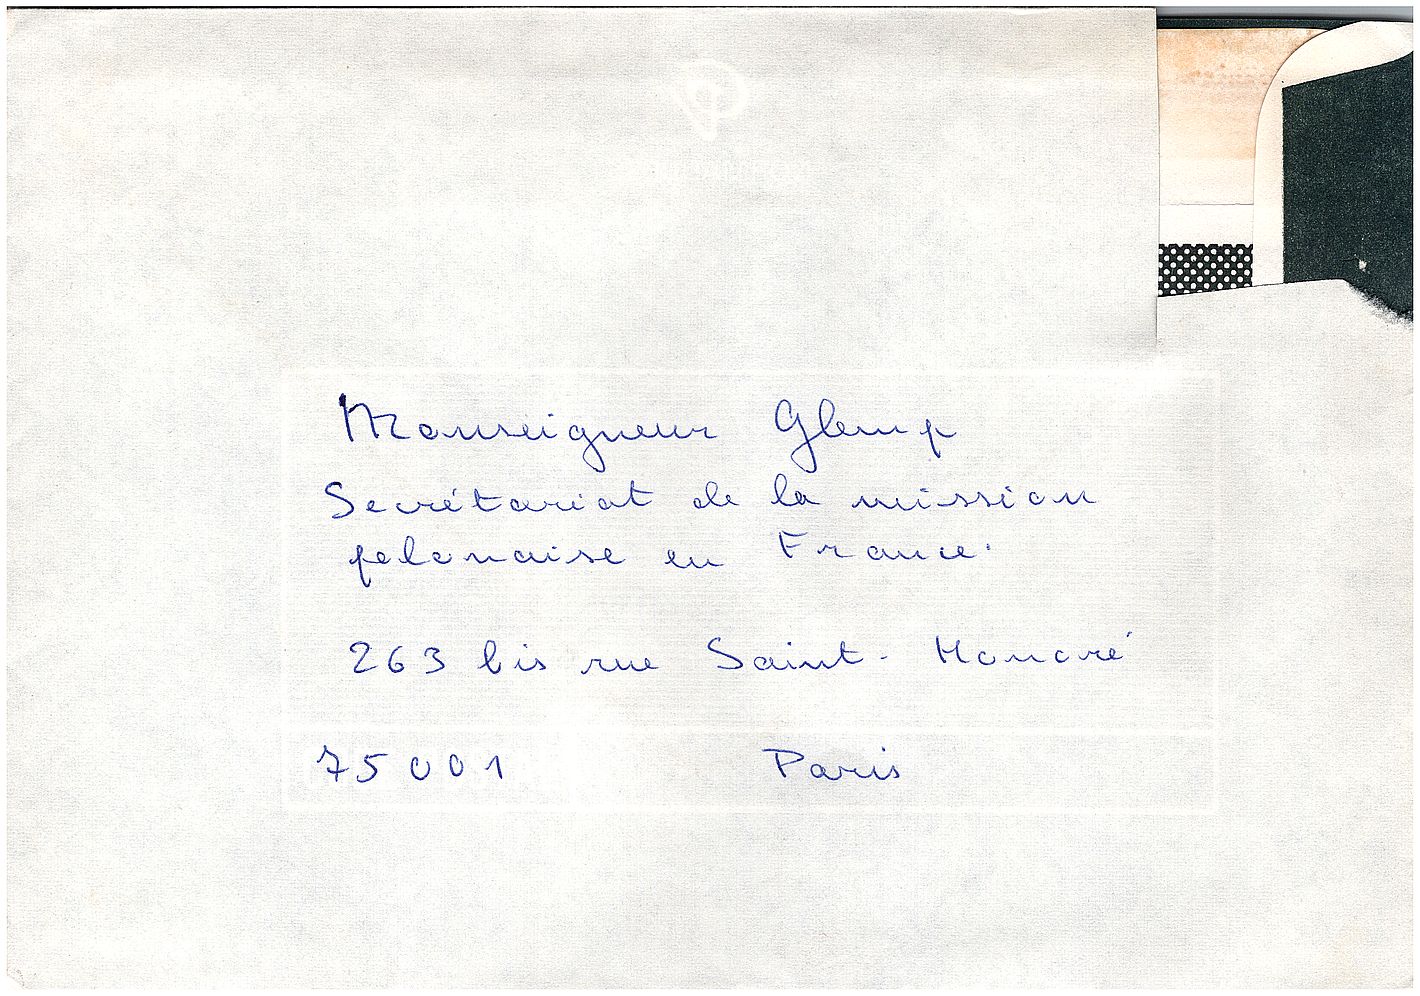 Monseigneur Glemp
Secrétariat de la mission
polonaise en France.
263 bis rue Saint-Honoré
75001 Paris